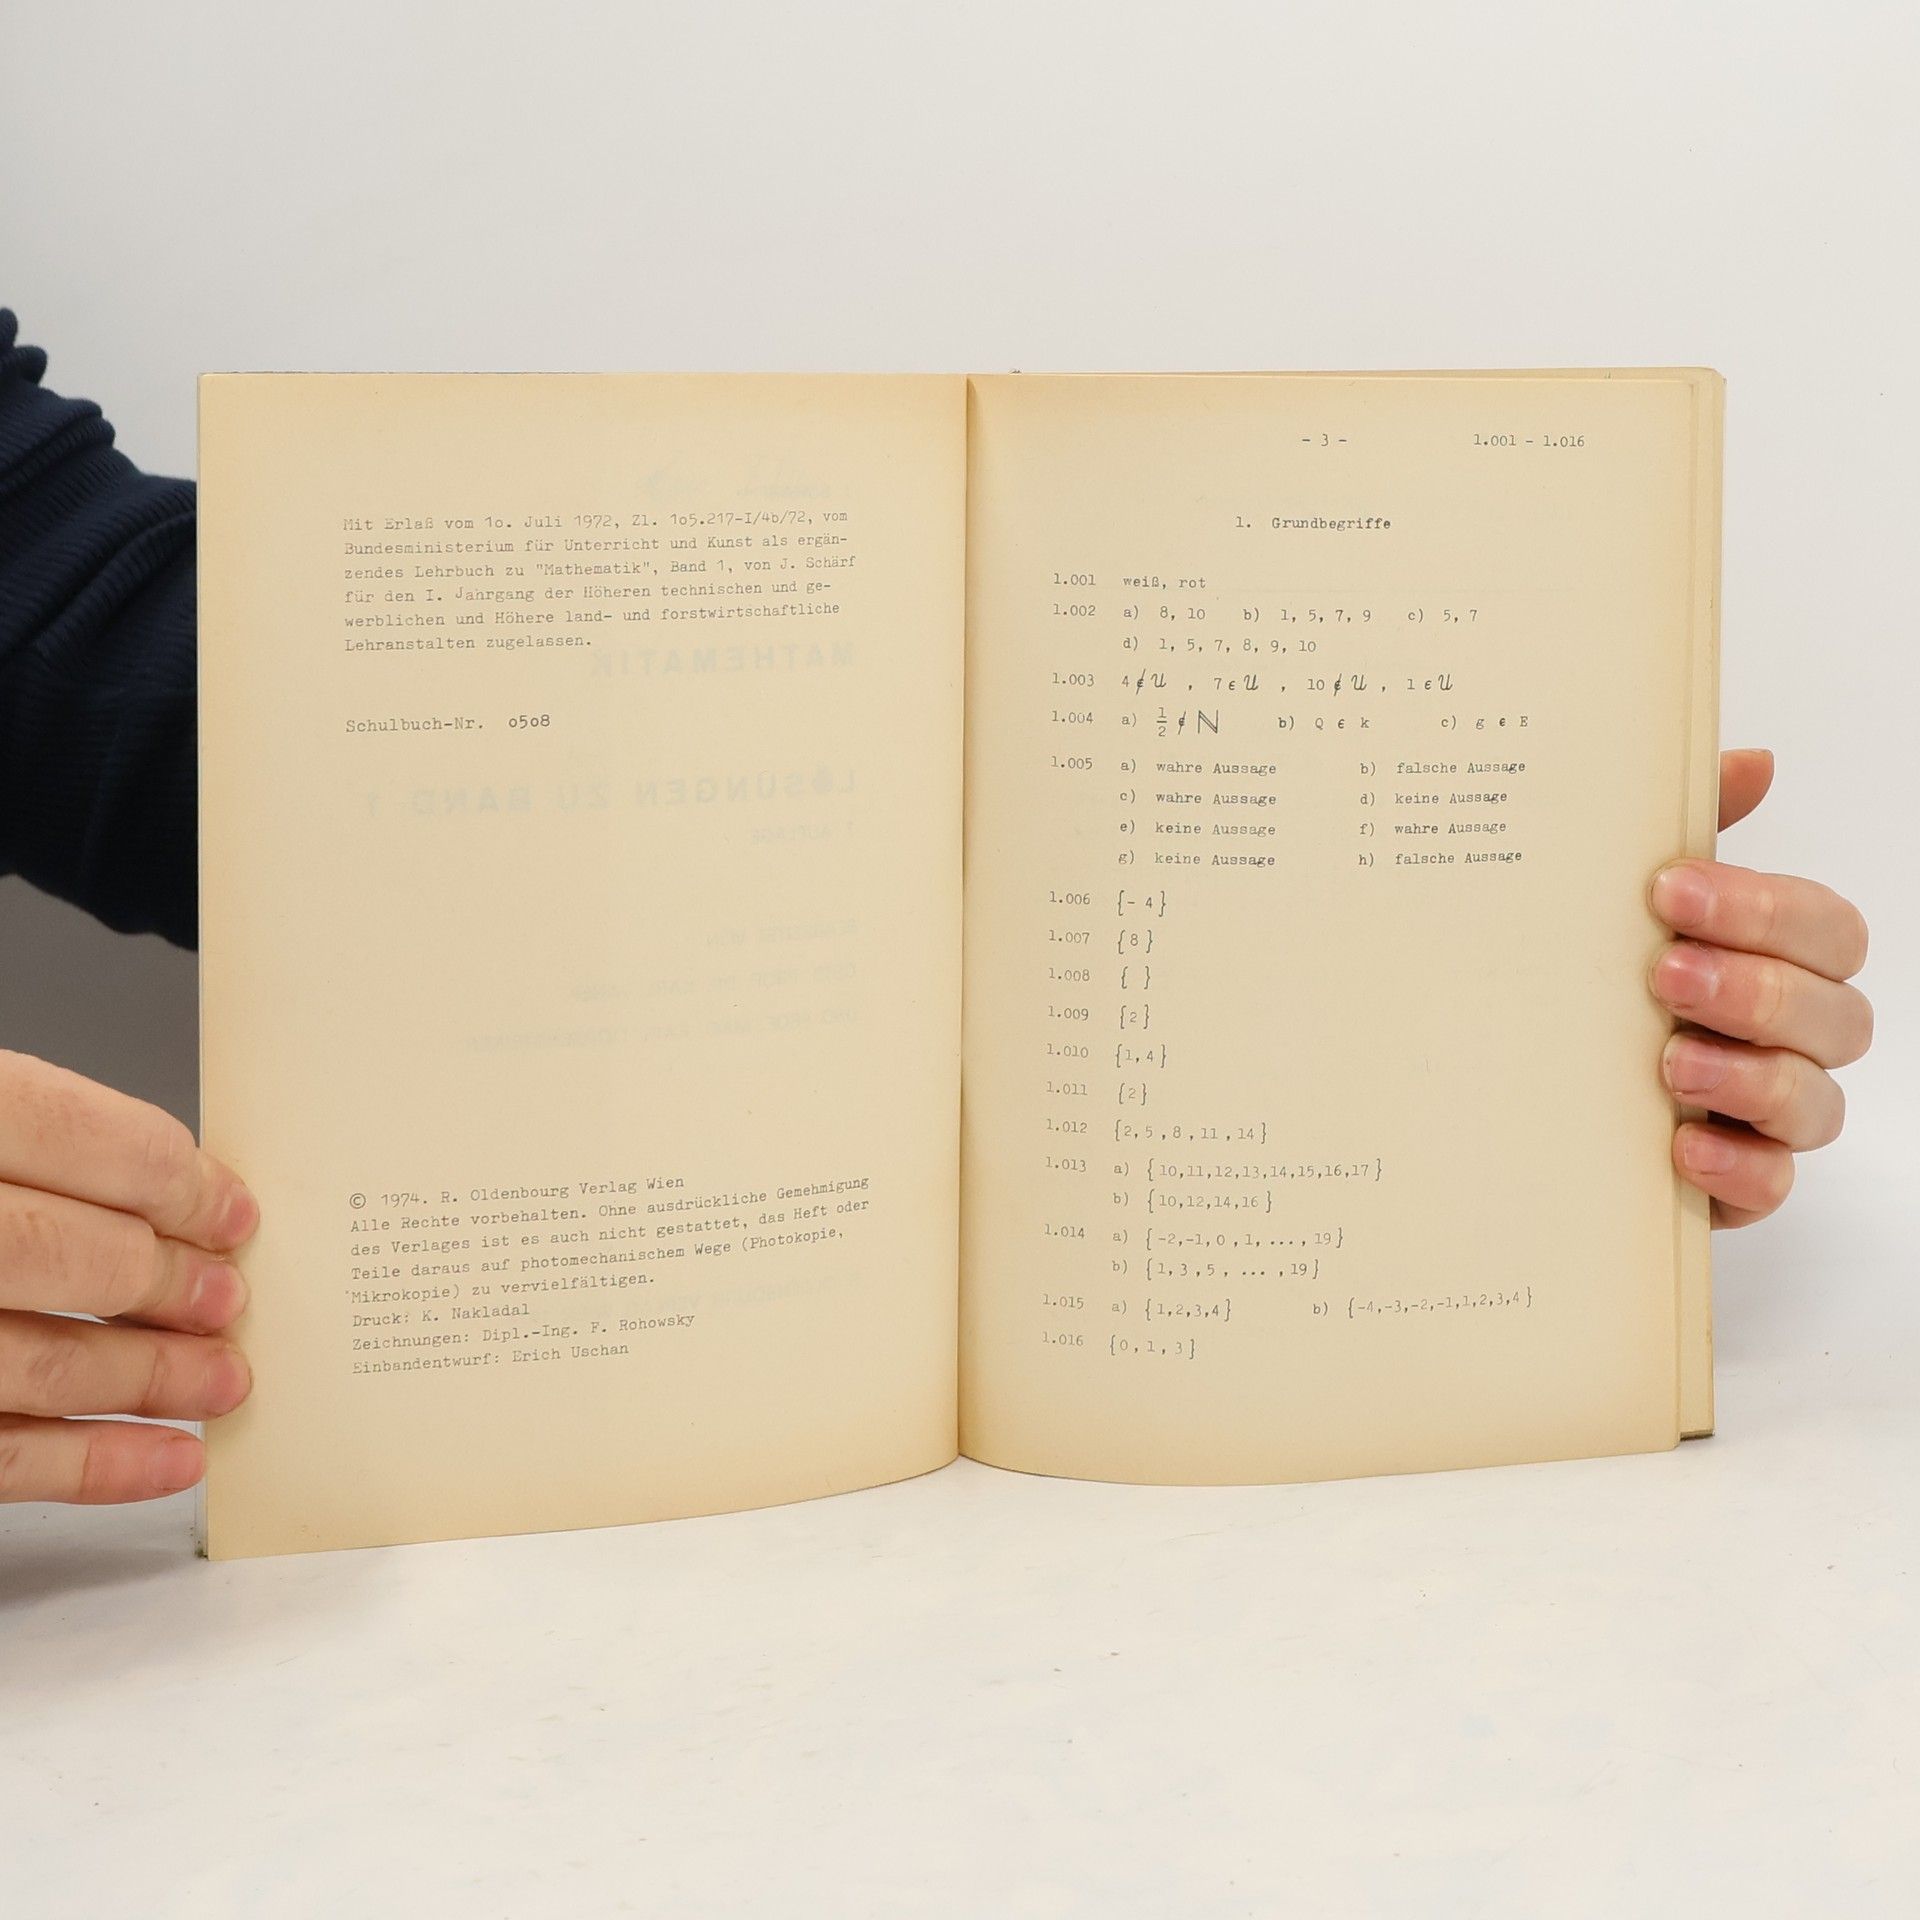 Mit Erlaß vom 1o. Juli 1972, Zl. 1o5.217-I/4b/72, vom
Bundesministerium für Unterricht und Kunst als ergän-
zendes Lehrbuch zu "Mathematik", Band 1, von J. Schärf
für den I. Jahrgang der Höheren technischen und ge-
werblichen und Höhere land- und forstwirtschaftliche
Lehranstalten zugelassen.
MATHEMATIK
Schulbuch-Nr. o5o8
LÖSUNGEN ZU BAND 1
© 1974. R. Oldenbourg Verlag Wien
Alle Rechte vorbehalten. Ohne ausdrückliche Gemehmigung
des Verlages ist es auch nicht gestattet, das Heft oder
Teile daraus auf photomechanischem Wege (Photokopie,
Mikrokopie) zu vervielfältigen.
Druck: K. Nakladal
Zeichnungen: Dipl.-Ing. F. Rohowsky
Einbandentwurf: Erich Uschan
- 3 - 1.001 - 1.016
1. Grundbegriffe
1.001 weiß, rot
1.002 a) 8, 10 b) 1, 5, 7, 9 c) 5, 7
d) 1, 5, 7, 8, 9, 10
1.003 4 ∉ U , 7 ∈ U , 10 ∉ U , 1 ∈ U
1.004 a) 1/2 ∉ ℕ b) Q ∈ k c) g ∈ E
1.005 a) wahre Aussage b) falsche Aussage
c) wahre Aussage d) keine Aussage
e) keine Aussage f) wahre Aussage
g) keine Aussage h) falsche Aussage
1.006 {- 4}
1.007 {8}
1.008 { }
1.009 {2}
1.010 {1, 4}
1.011 {2}
1.012 {2, 5 , 8 , 11 , 14}
1.013 a) {10,11,12,13,14,15,16,17}
b) {10,12,14,16}
1.014 a) {-2,-1,0 , 1, ..., 19}
b) {1, 3 , 5 , ... , 19}
1.015 a) {1,2,3,4} b) {-4,-3,-2,-1,1,2,3,4}
1.016 {0 , 1 , 3}